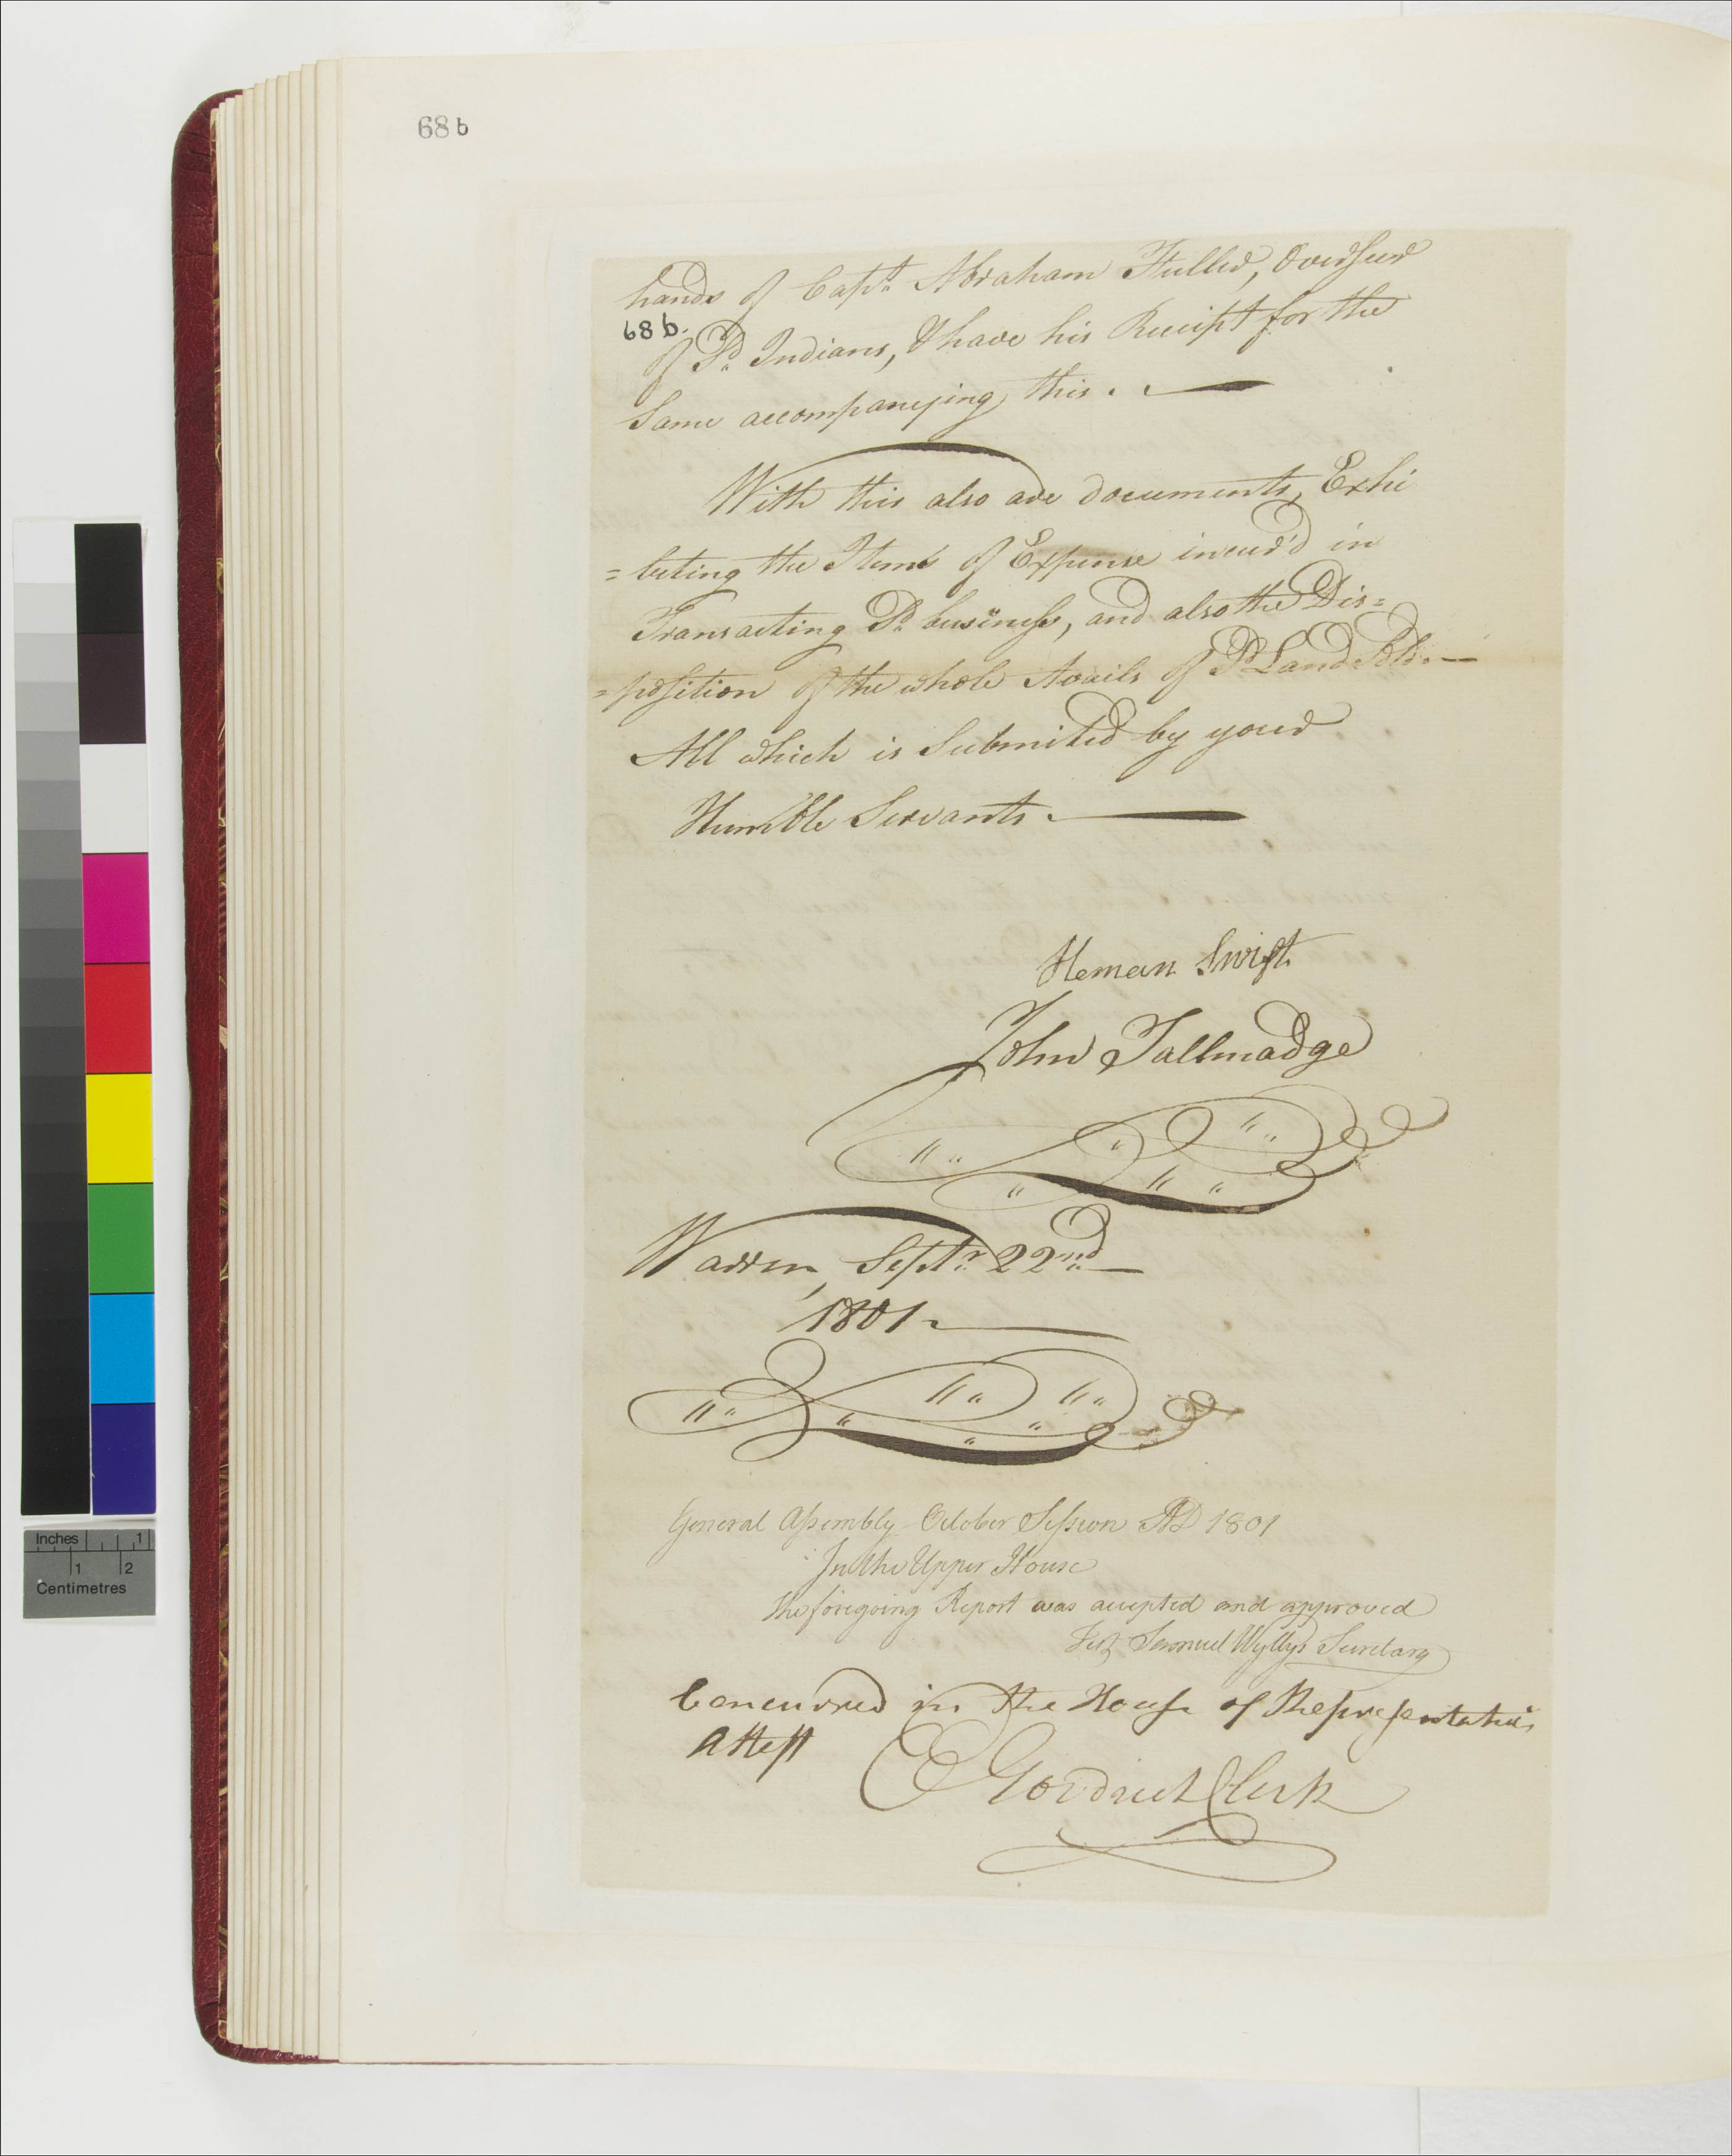 68 b
hands of Capt. Abraham Fuller, Overseer
68 b.
of Sd. Indians, & have his Receipt for the
Same accompanying this.
With this also are documents, Exhi
=biting the Items of Expense incur'd in
Transacting Sd. business, and also the Dis=
=position of the whole Avails of Sd. Land Sold.
All which is Submited by your
Humble Servants.
Heman Swift
John Tallmadge
Warren, Septr. 22nd
1801.
General Assembly October Session AD 1801
In the Upper House
the foregoing Report was accepted and approved
Test Samuel Wyllys Secretary
Concurred in the House of Representatives
Attest
E Goodrich Clerk
Inches 1
1 2
Centimetres